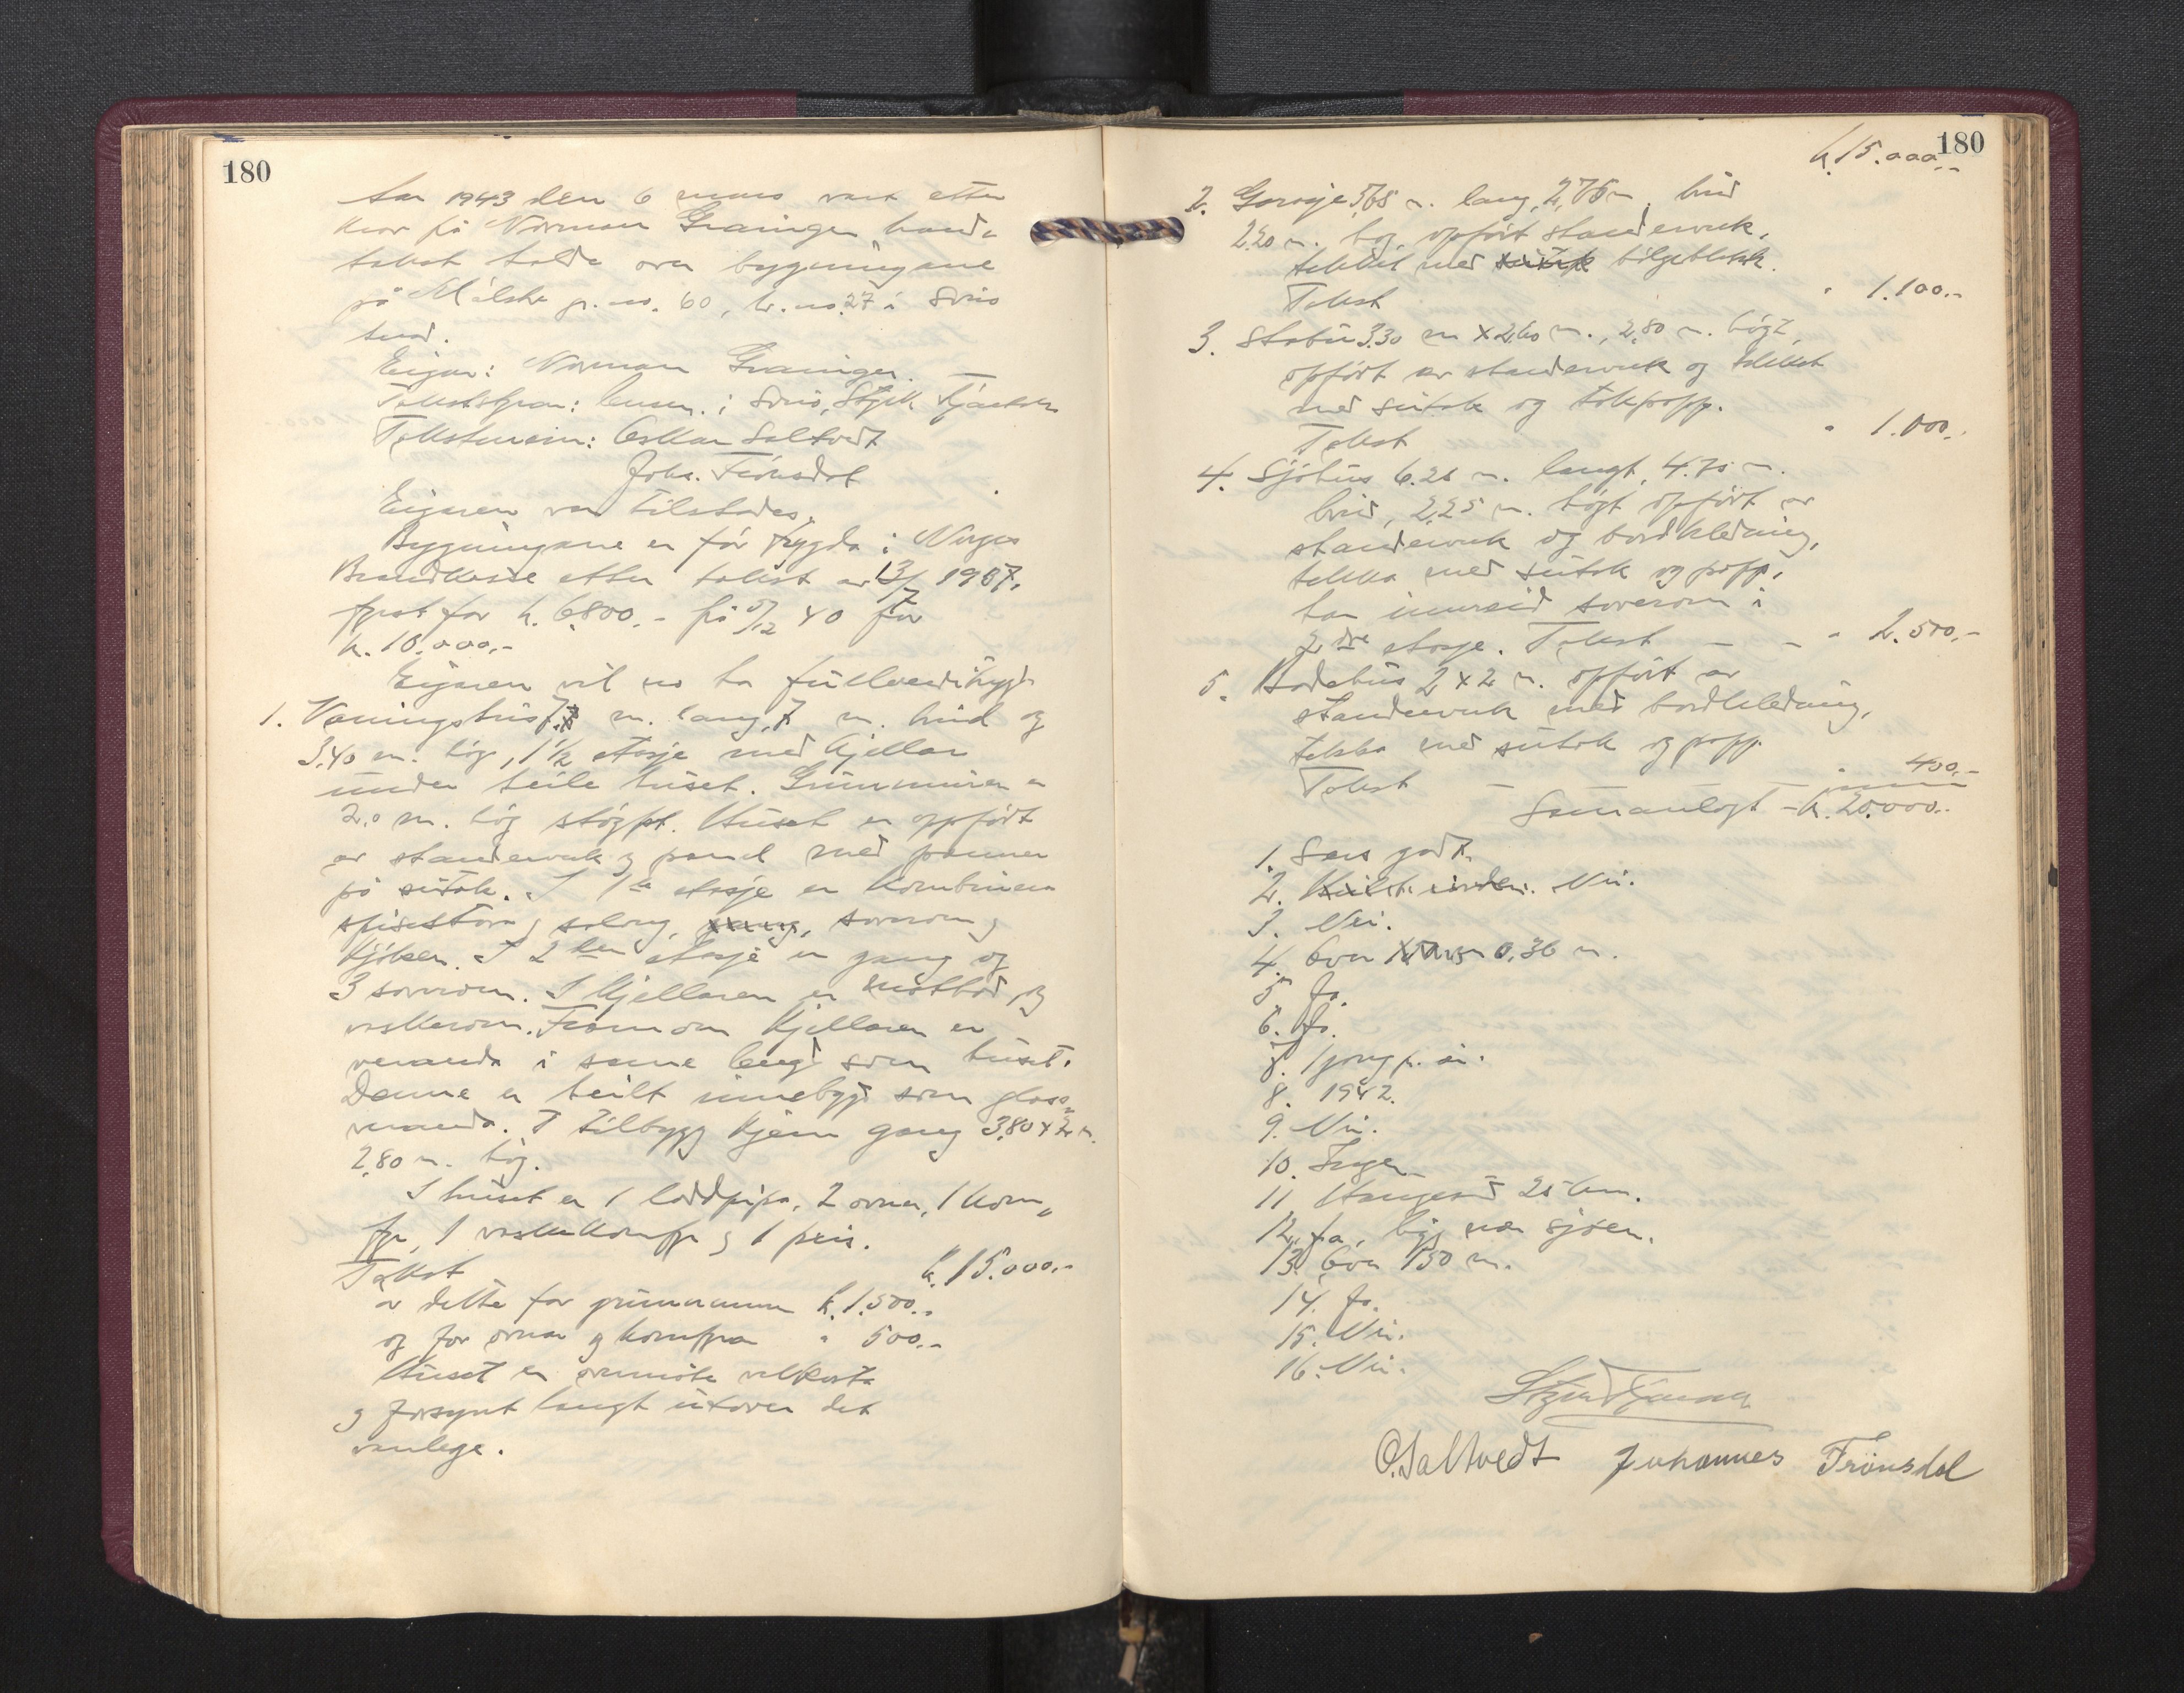 180
År 1943 den 6 mars vart etter
krav frå Norman Grainger brand-
takst halde over bygningane
på Målshe gr. no. 60, br. no. 27 i Sveio
herad.
Eigar: Norman Grainger.
Takststyrar: lensm. i Sveio,
Takstmenn: Oskar Saltvedt
Johs. Trönsdal
Eigaren var tilstades.
Bygningane er för trygda i Norges
Brandkasse etter takst av 13/7 1937,
fyrst for k. 6.800.- frå 5/12 40 for
k. 10.000,-
Eigaren vil no ha fullverditrygd
1. Våningshus m. lang, 7 m. breid og
3.40 m. høg, 1 1/2 etasje med kjellar
under heile huset. Grunnmuren er
2.0 m. høg støypt. Huset er oppført
av standerverk og panel med panner
på sutak. I 1ste etasje er kombinera
spisestova og salong, gang, soverom og
kjøken. I 2den etasje er gang og
3 soverom. I kjellaren er matbod og
vaskerom. Framom kjellaren er
veranda i same lengd som huset.
Denne er heilt innebygd som glass-
veranda. I tilbygg kjem gang 3,80 x 2 m.
2,80 m. høg.
I huset er 1 loddpipa, 2 ovnar, 1 kom-
fyr, 1 vaskekomfyr og 1 peis.
Takst k. 15.000.-
av dette for grunnmuren k. 1.500.-
og for ovnar og komfyra " 500.-
Huset er
og forsynt langt utover det
vanlege.
180
k. 15.000,-
2. Garasje 5,68 m. lang, 2,76 m. breid
2,20 m. høg, oppført standerverk,
tekket med sutak bølgeblekk.
Takst " 1.100.-
3. Stabu 3.30 m x 2,60 m., 2,80 m. høgt,
oppført av standerverk og tekket
med sutak og takpapp.
Takst " 1.000.-
4. Sjøhus 6.25 m. langt, 4.70 m.
breid, 2,25 m. høgt oppført av
standerverk og bordkledning,
tekka med sutak og papp.
har innreid soverom i
2dre etasje. Takst - - " 2.500.-
5. Badehus 2 x 2 m. oppført av
standerverk med bordkledning,
tekka med sutak og papp.
Takst - - " 400.-
Samanlagt - k. 20.000.-
1. Sers godt.
2. Nei.
3. Nei.
4. Over 0,36 m.
5. Ja.
6. Ja.
7. 1 gong p. år.
8. 1942.
9. Nei.
10. Ingen
11. Haugesund 25 km.
12. Ja, ligg nær sjøen.
13. Over 150 m.
14. Ja.
15. Nei.
16. Nei.
O. Saltvedt Johannes Trönsdal